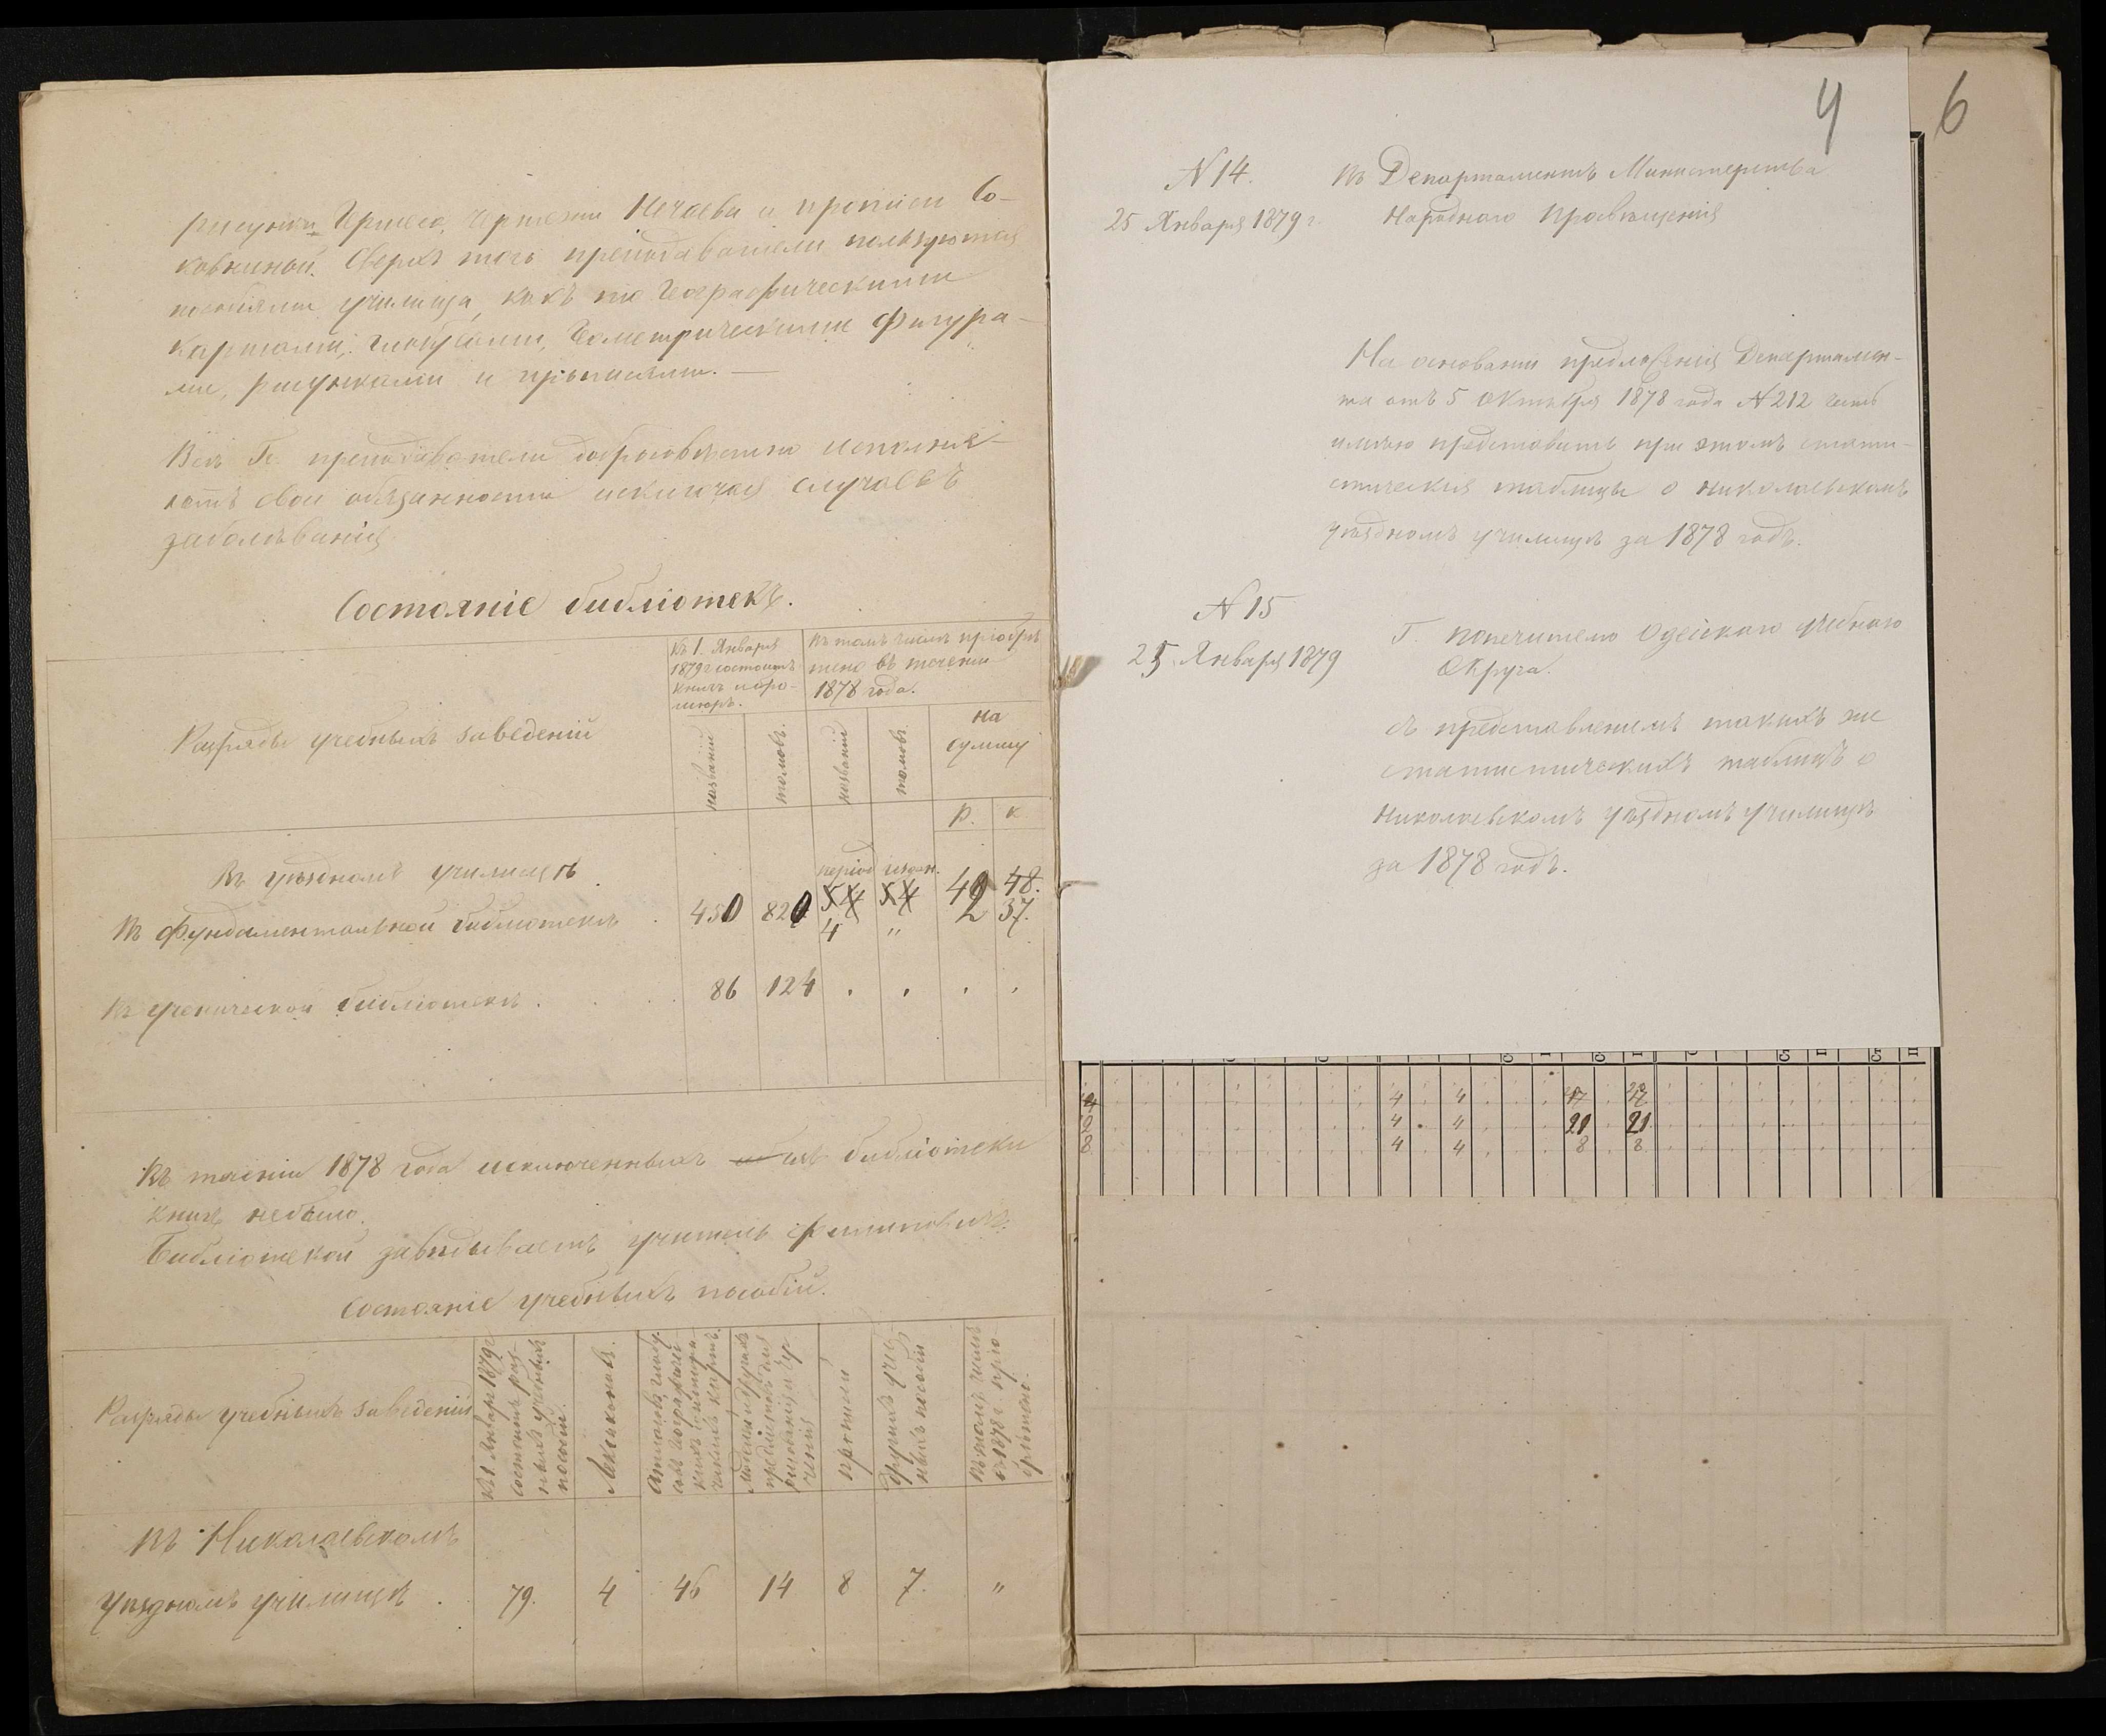 рисунки Гермеса, чертежи Нечаева и прописи Со-
ковниной. Сверхъ того преподаватели пользуются
пособіями училища, какъ то Географическими
картами, глобусами, Геометрическими Фигура-
ми, рисунками и прописями. —
Всѣ Гг. преподаватели добросовѣстно исполня-
ютъ свои обязанности исключая случаевъ
заболѣванія
Состояніе библіотекъ.
Разряды учебныхъ заведеній
Къ 1. Января
1879 г состоитъ
книгъ и бро-
шюръ.
Въ томъ числѣ пріобрѣ
тено въ теченіи
1878 года.
названій
томовъ.
названій
томовъ.
на
сумму
Р. К
Въ уѣздномъ училищѣ
період издан.
Въ Фундаментальной библіотекѣ 450 820 48.
4 " 2 37.
Въ ученической библіотекѣ 86 124
Въ теченіи 1878 года исключенныхъ изъ библіотеки
книгъ небыло.
Библіотекой завѣдываетъ учитель Филиповичъ.
Состояніе учебныхъ пособій.
Разряды учебныхъ заведеній
Къ 1 Января 1879 г
состоитъ раз-
ныхъ учебныхъ
пособій.
прописей
Другихъ учеб-
ныхъ пособій
Въ томъ числѣ
въ 1878 г. прі
обрѣтено.
Въ Николаевскомъ
уѣздномъ училищѣ 79. 4 46 14 8 7. "
4
6
N 14.
25 Января 1879 г.
Въ Департаментъ Министерства
Народнаго Просвѣщенія
На основаніи предложенія Департамен-
та отъ 5 Октября 1878 года N 212 честь
имѣю представить при этомъ стати-
стическія таблицы о Николаевскомъ
уѣздномъ училищѣ за 1878 годъ.
N 15
25 Января 1879
Г. попечителю Одесскаго учебнаго
Округа.
съ представленіемъ такихъ же
статистическихъ таблицъ о
Николаевскомъ уѣздномъ училищѣ
за 1878 годъ.
4 4
4 4 21 21
8 4 4 8 8